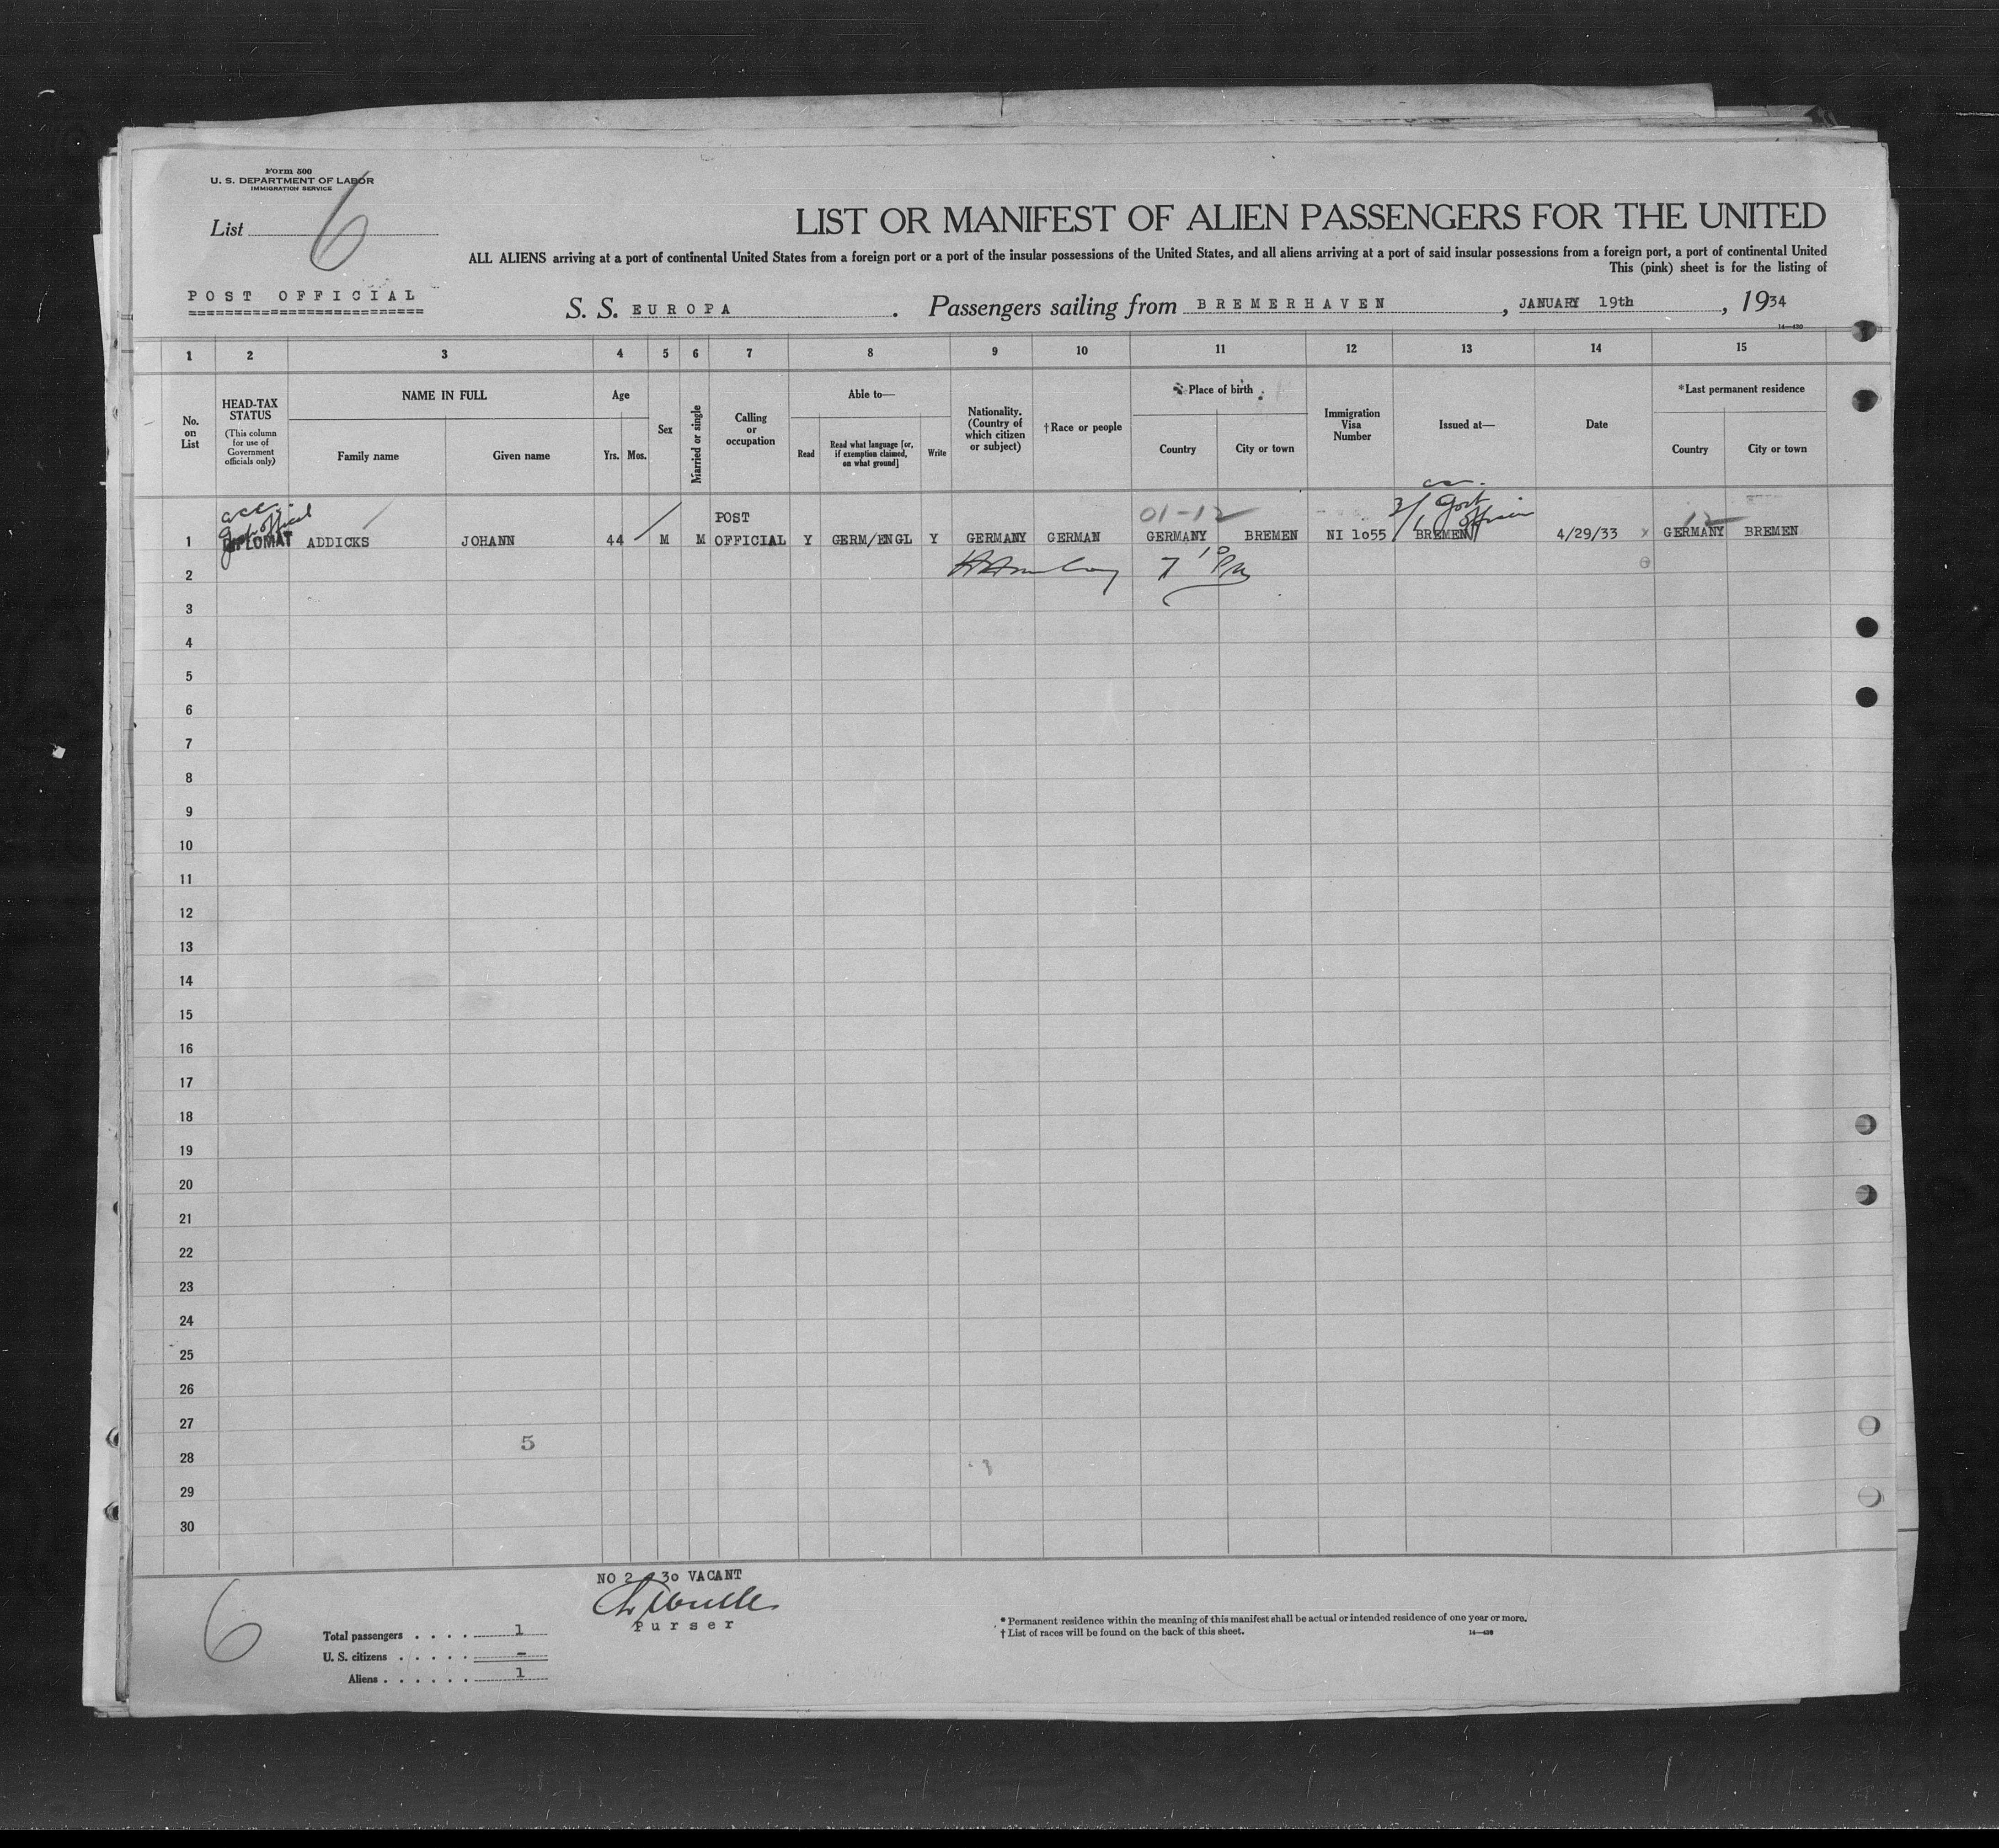 Form 500
U. S. DEPARTMENT OF LABOR
IMMIGRATION SERVICE
List 6
LIST OR MANIFEST OF ALIEN PASSENGERS FOR THE UNITED
ALL ALIENS arriving at a port of continental United States from a foreign port or a port of the insular possessions of the United States, and all aliens arriving at a port of said insular possessions from a foreign port, a port of continental United
This (pink) sheet is for the listing of
POST OFFICIAL
S. S. EUROPA . Passengers sailing from BREMERHAVEN , JANUARY 19th , 1934
14—430
1 2 3 4 5 6 7 8 9 10 11 12 13 14 15
No. on List
HEAD-TAX STATUS
(This column for use of Government officials only)
NAME IN FULL
Family name
Given name
Age
Yrs. Mos.
Sex
Married or single
Calling or occupation
Able to—
Read
Read what language [or, if exemption claimed, on what ground]
Write
Nationality. (Country of which citizen or subject)
†Race or people
Place of birth
Country
City or town
Immigration Visa Number
Issued at—
Date
*Last permanent residence
Country
City or town
acc.
Govt official
01-12
3/1 Govt
12
1 DIPLOMAT ADDICKS JOHANN 44 M M POST OFFICIAL Y GERM/ENGL Y GERMANY GERMAN GERMANY BREMEN NI 1055 BREMEN 4/29/33 x GERMANY BREMEN
2 7 10 PM
3
4
5
6
7
8
9
10
11
12
13
14
15
16
17
18
19
20
21
22
23
24
25
26
27
5
28
29
30
NO 2 - 30 VACANT
Purser
6
Total passengers . . . . 1
U. S. citizens . . . . . -
Aliens . . . . . . 1
* Permanent residence within the meaning of this manifest shall be actual or intended residence of one year or more.
† List of races will be found on the back of this sheet.
14—430